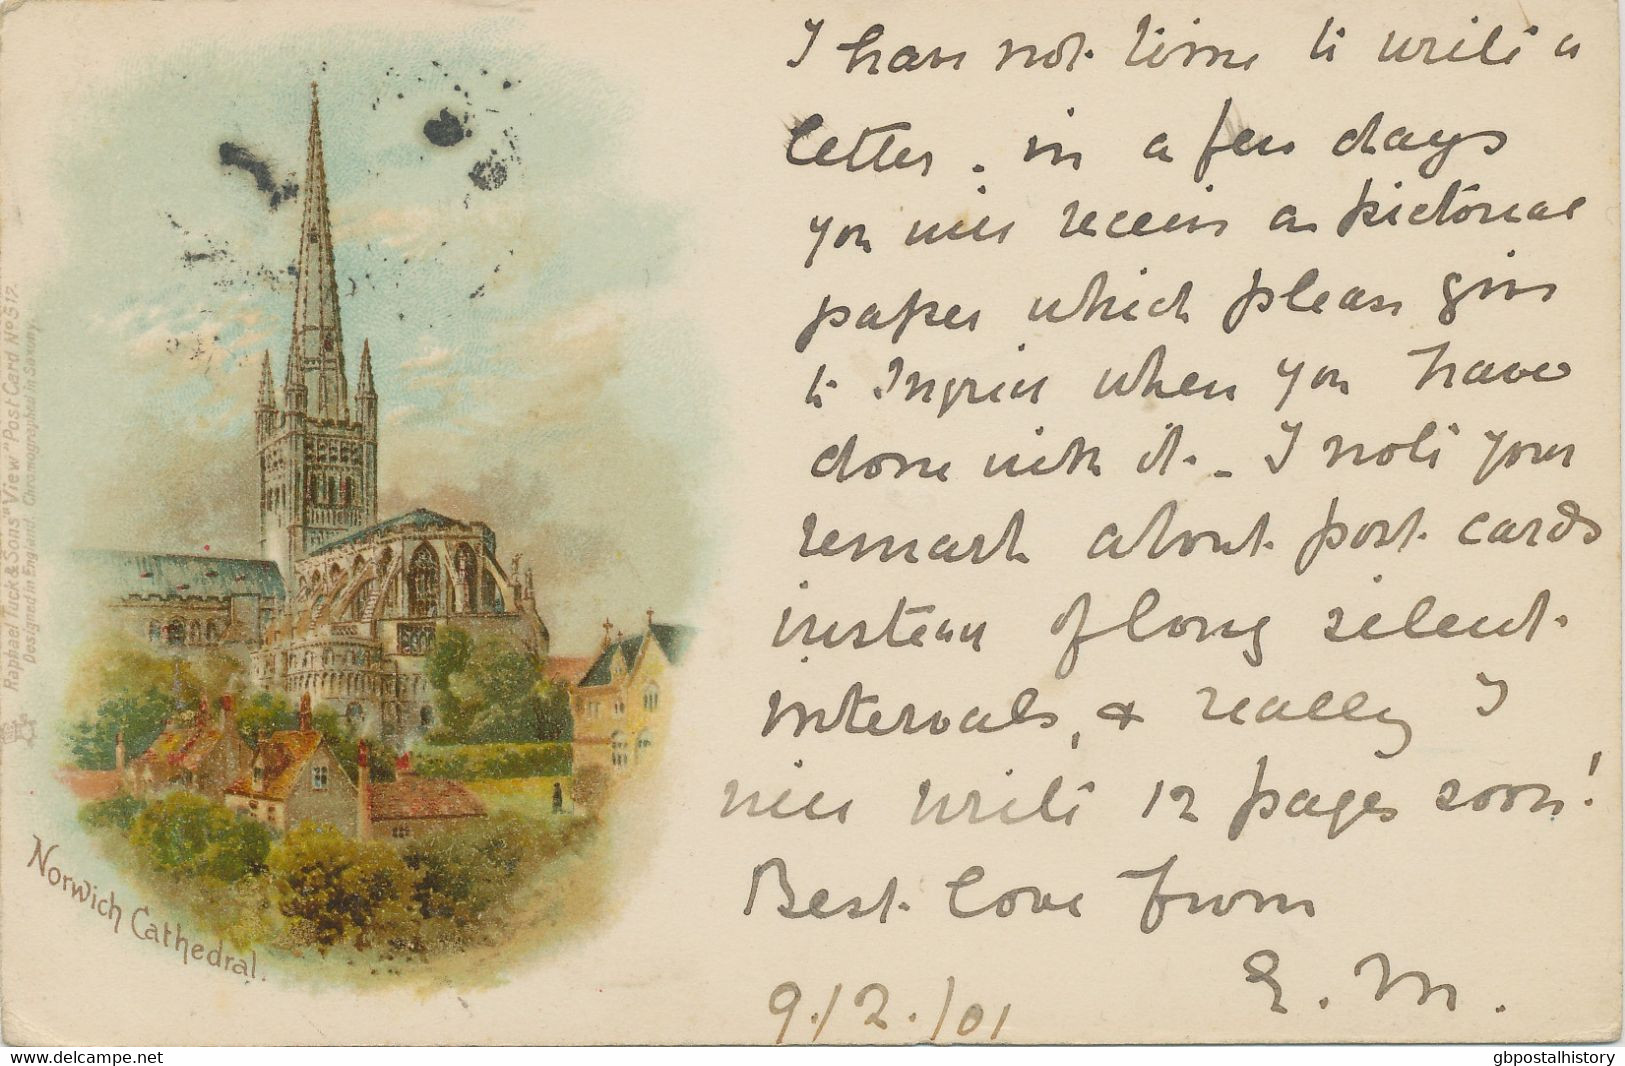 I have not time to write a
letter. in a few days
you will receive a pictorial
paper which please give
to Ingrid when you have
done with it. - I note your
remark about post cards
instead of long silent
intervals, & really I
will write 12 pages soon!
Best love from
E. M.
9./2./01
Norwich Cathedral.
Raphael Tuck & Sons "View" Post Card Nº 517.
Designed in England. Chromographed in Saxony.
www.delcampe.net
gbpostalhistory